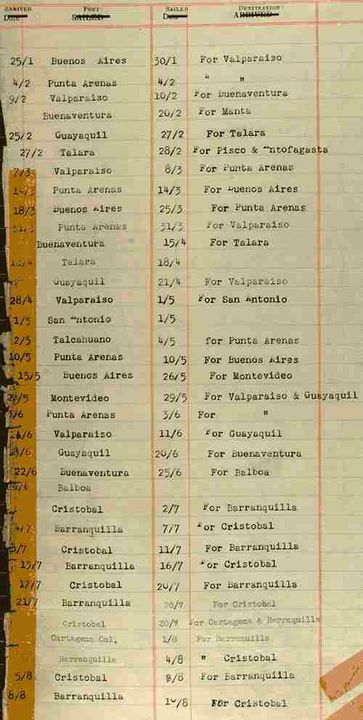 ARRIVED PORT SAILED DESTINATION
Date SAILED Date ARRIVED
25/1 Buenos Aires 30/1 For Valparaiso
4/2 Punta Arenas 4/2 " "
9/2 Valparaiso 10/2 For Buenaventura
Buenaventura 20/2 For Manta
25/2 Guayaquil 27/2 For Talara
27/2 Talara 28/2 For Pisco & Antofagasta
7/3 Valparaiso 8/3 For Punta Arenas
14/3 Punta Arenas 14/3 For Buenos Aires
18/3 Buenos Aires 25/3 For Punta Arenas
31/3 Punta Arenas 31/3 For Valparaiso
Buenaventura 15/4 For Talara
Talara 18/4
Guayaquil 21/4 For Valparaiso
28/4 Valparaiso 1/5 For San Antonio
1/5 San Antonio 1/5
2/5 Talcahuano 4/5 for Punta Arenas
10/5 Punta Arenas 10/5 For Buenos Aires
15/5 Buenos Aires 26/5 For Montevideo
Montevideo 29/5 For Valparaiso & Guayaquil
Punta Arenas 3/6 For "
Valparaiso 11/6 For Guayaquil
Guayaquil 20/6 For Buenaventura
22/6 Buenaventura 25/6 For Balboa
Balboa
Cristobal 2/7 For Barranquilla
4/7 Barranquilla 7/7 For Cristobal
Cristobal 11/7 For Barranquilla
15/7 Barranquilla 16/7 For Cristobal
17/7 Cristobal 20/7 For Barranquilla
21/7 Barranquilla 26/7 For Cristobal
Cristobal For Cartagena & Barranquilla
Cartagena Col. 1/8 For Barranquilla
Barranquilla 4/8 " Cristobal
5/8 Cristobal 8/8 For Barranquilla
8/8 Barranquilla For Cristobal